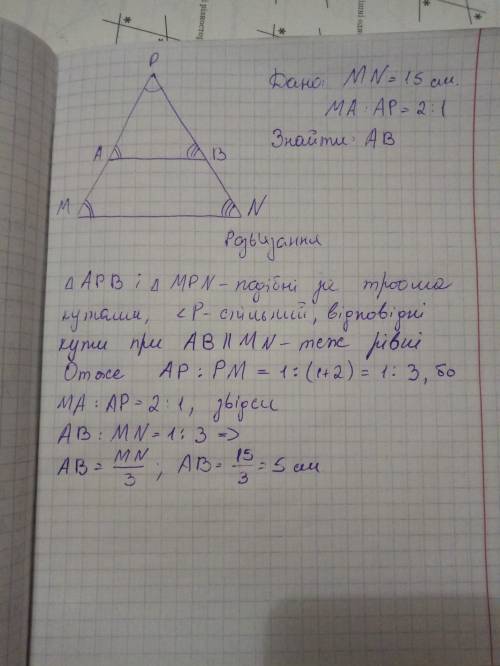 P
Дано: MN = 15 см.
MA : AP = 2 : 1
Знайти: AB
A B
M N
Розв'язання
△ APB і △ MPN - подібні за трьома
кутами, ∠P - спільний, відповідні
кути при AB || MN - теж рівні
Отже AP : PM = 1 : (1+2) = 1 : 3, бо
MA : AP = 2 : 1, звідси
AB : MN = 1 : 3 =>
AB = MN/3 ; AB = 15/3 = 5 см